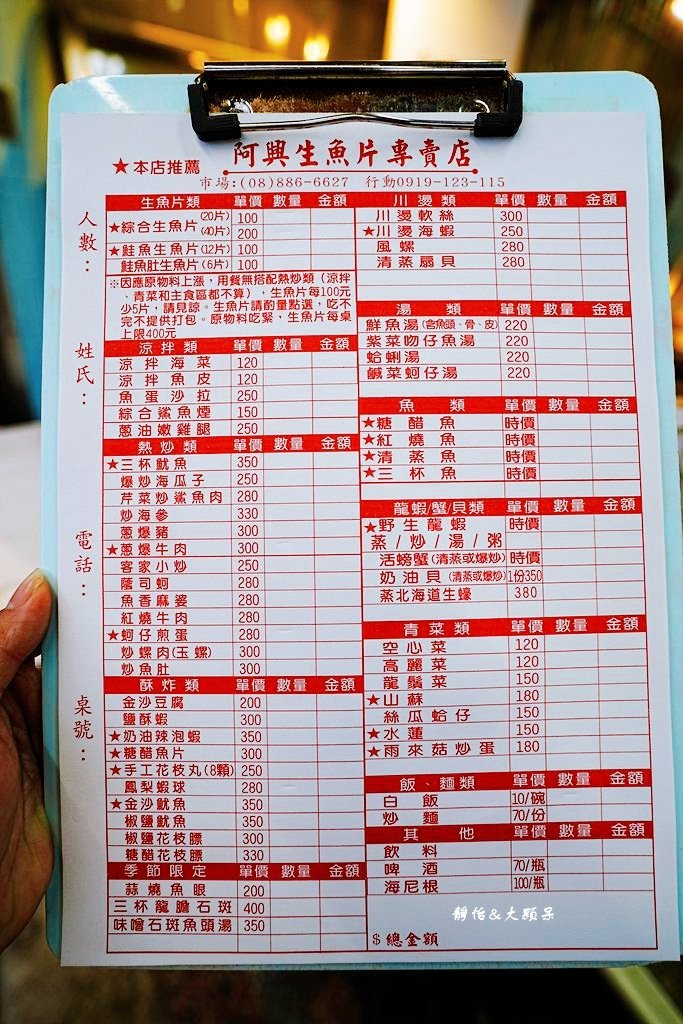 ★本店推薦 阿興生魚片專賣店
市場:(08)886-6627 行動0919-123-115
人數：
姓氏：
電話：
桌號：
生魚片類 單價 數量 金額
★綜合生魚片 (20片) 100
(40片) 200
★鮭魚生魚片(12片) 100
鮭魚肚生魚片(6片) 100
※因應原物料上漲，用餐無搭配熱炒類（涼拌
、青菜和主食區都不算），生魚片每100元
少5片，請見諒。生魚片請酌量點選，吃不
完不提供打包。原物料吃緊，生魚片每桌
上限400元
涼拌類 單價 數量 金額
涼拌海菜 120
涼拌魚皮 120
魚蛋沙拉 250
綜合鯊魚煙 150
蔥油嫩雞腿 250
熱炒類 單價 數量 金額
★三杯魷魚 350
爆炒海瓜子 250
芹菜炒鯊魚肉 280
炒海參 330
蔥爆豬 300
★蔥爆牛肉 300
客家小炒 250
蔭司蚵 280
魚香麻婆 280
紅燒牛肉 280
★蚵仔煎蛋 280
炒螺肉(玉螺) 300
炒魚肚 300
酥炸類 單價 數量 金額
金沙豆腐 200
鹽酥蝦 300
★奶油辣泡蝦 350
★糖醋魚片 300
★手工花枝丸(8顆) 250
鳳梨蝦球 280
★金沙魷魚 350
椒鹽魷魚 350
椒鹽花枝膘 300
糖醋花枝膘 330
季節限定 單價 數量 金額
蒜燒魚眼 200
三杯龍膽石斑 400
味噌石斑魚頭湯 350
川燙類 單價 數量 金額
川燙軟絲 300
★川燙海蝦 250
風螺 280
清蒸扇貝 280
湯類 單價 數量 金額
鮮魚湯(含魚頭、骨、皮) 220
紫菜吻仔魚湯 220
蛤蜊湯 220
鹹菜蚵仔湯 220
魚類 單價 數量 金額
★糖醋魚 時價
★紅燒魚 時價
★清蒸魚 時價
★三杯魚 時價
龍蝦/蟹/貝類 單價 數量 金額
★野生龍蝦 時價
蒸/炒/湯/粥
活螃蟹(清蒸或爆炒) 時價
奶油貝(清蒸或爆炒) 1份350
蒸北海道生蠔 380
青菜類 單價 數量 金額
空心菜 120
高麗菜 120
龍鬚菜 150
★山蘇 180
絲瓜蛤仔 150
★水蓮 150
★雨來菇炒蛋 180
飯、麵類 單價 數量 金額
白飯 10/碗
炒麵 70/份
其他 單價 數量 金額
飲料
啤酒 70/瓶
海尼根 100/瓶
靜怡&大顆呆
$總金額